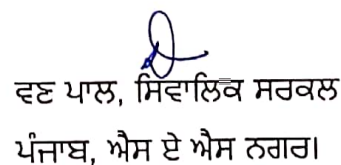 ਵਣ ਪਾਲ, ਸਿਵਾਲਿਕ ਸਰਕਲ
ਪੰਜਾਬ, ਐਸ ਏ ਐਸ ਨਗਰ।